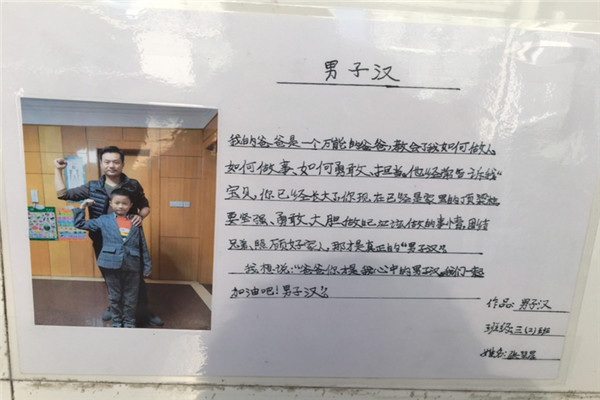 男子汉
我的爸爸是一个万能的爸爸,教会了我如何做人、
如何做事、如何勇敢、担当。他经常告诉我“
宝贝,你已经长大了,你现在已经是家里的顶梁柱
要坚强、勇敢、大胆做自己应该做的事情,团结
兄弟,照顾好家人,那才是真正的“男子汉”。
我想说:“爸爸你才是我心中的男子汉,我们一起
加油吧!男子汉”。
作品:男子汉
班级:三(2)班
姓名: